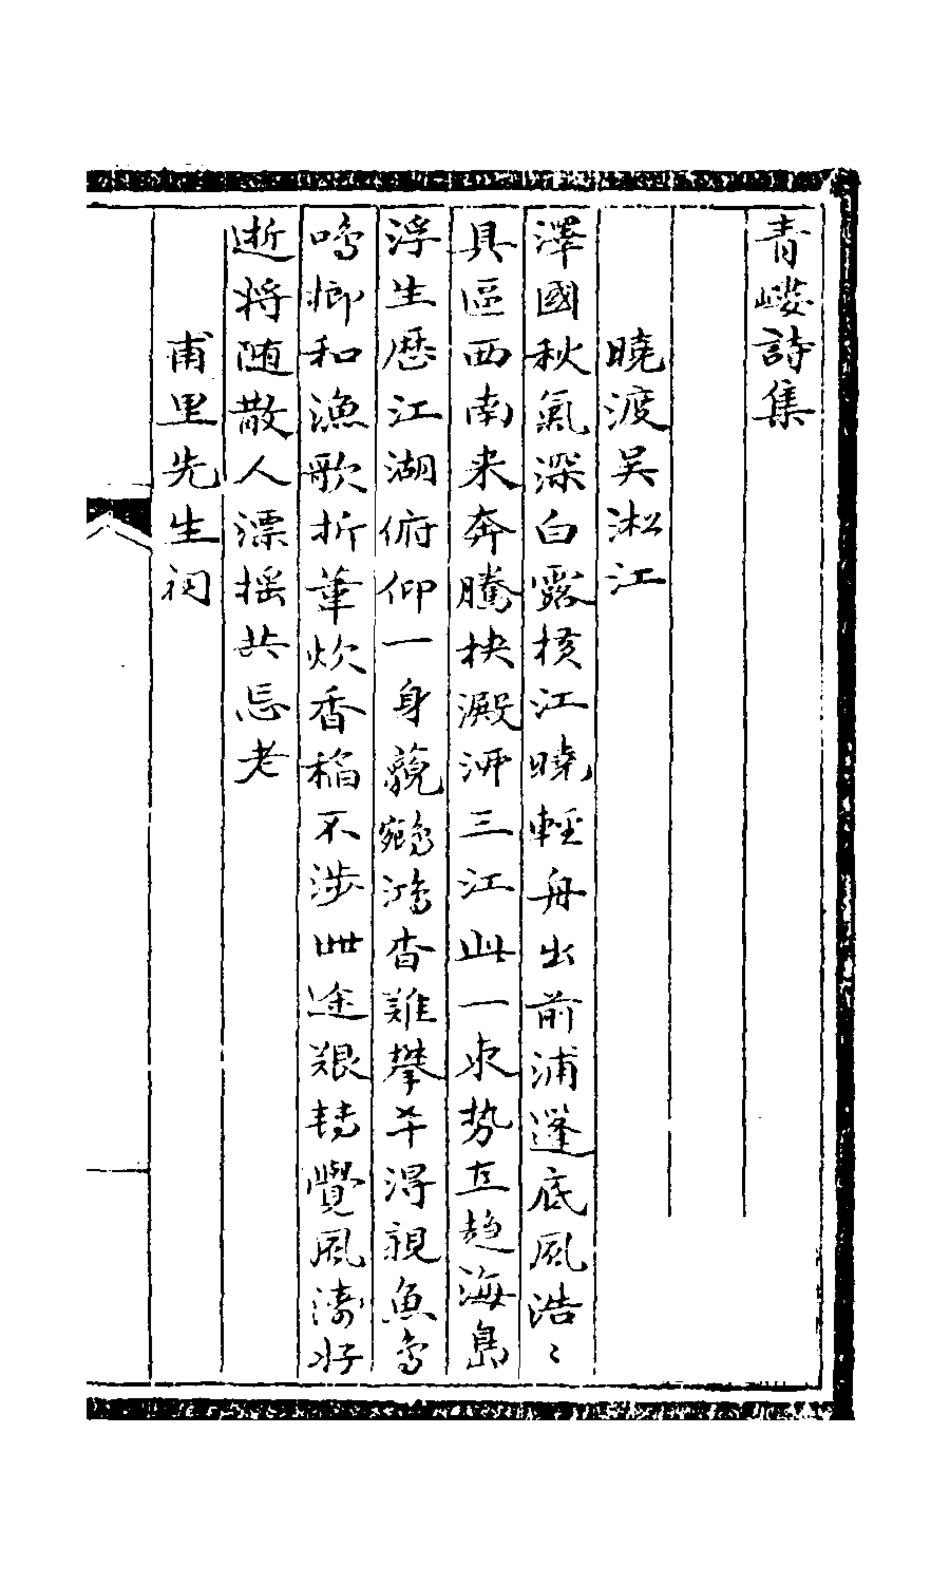 青嶁詩集
曉渡吴淞江
澤國秋氣深白露横江曉輕舟出前浦篷底風浩〻
具區西南来奔騰抉澱泖三江此一束势直趋海島
浮生厯江湖俯仰一身藐鵷鴻杳難攀幸得親魚鳥
鳴榔和漁歌折葦炊香稲不涉世途艱轉覺風濤好
逝将随散人漂摇共忘老
甫里先生祠